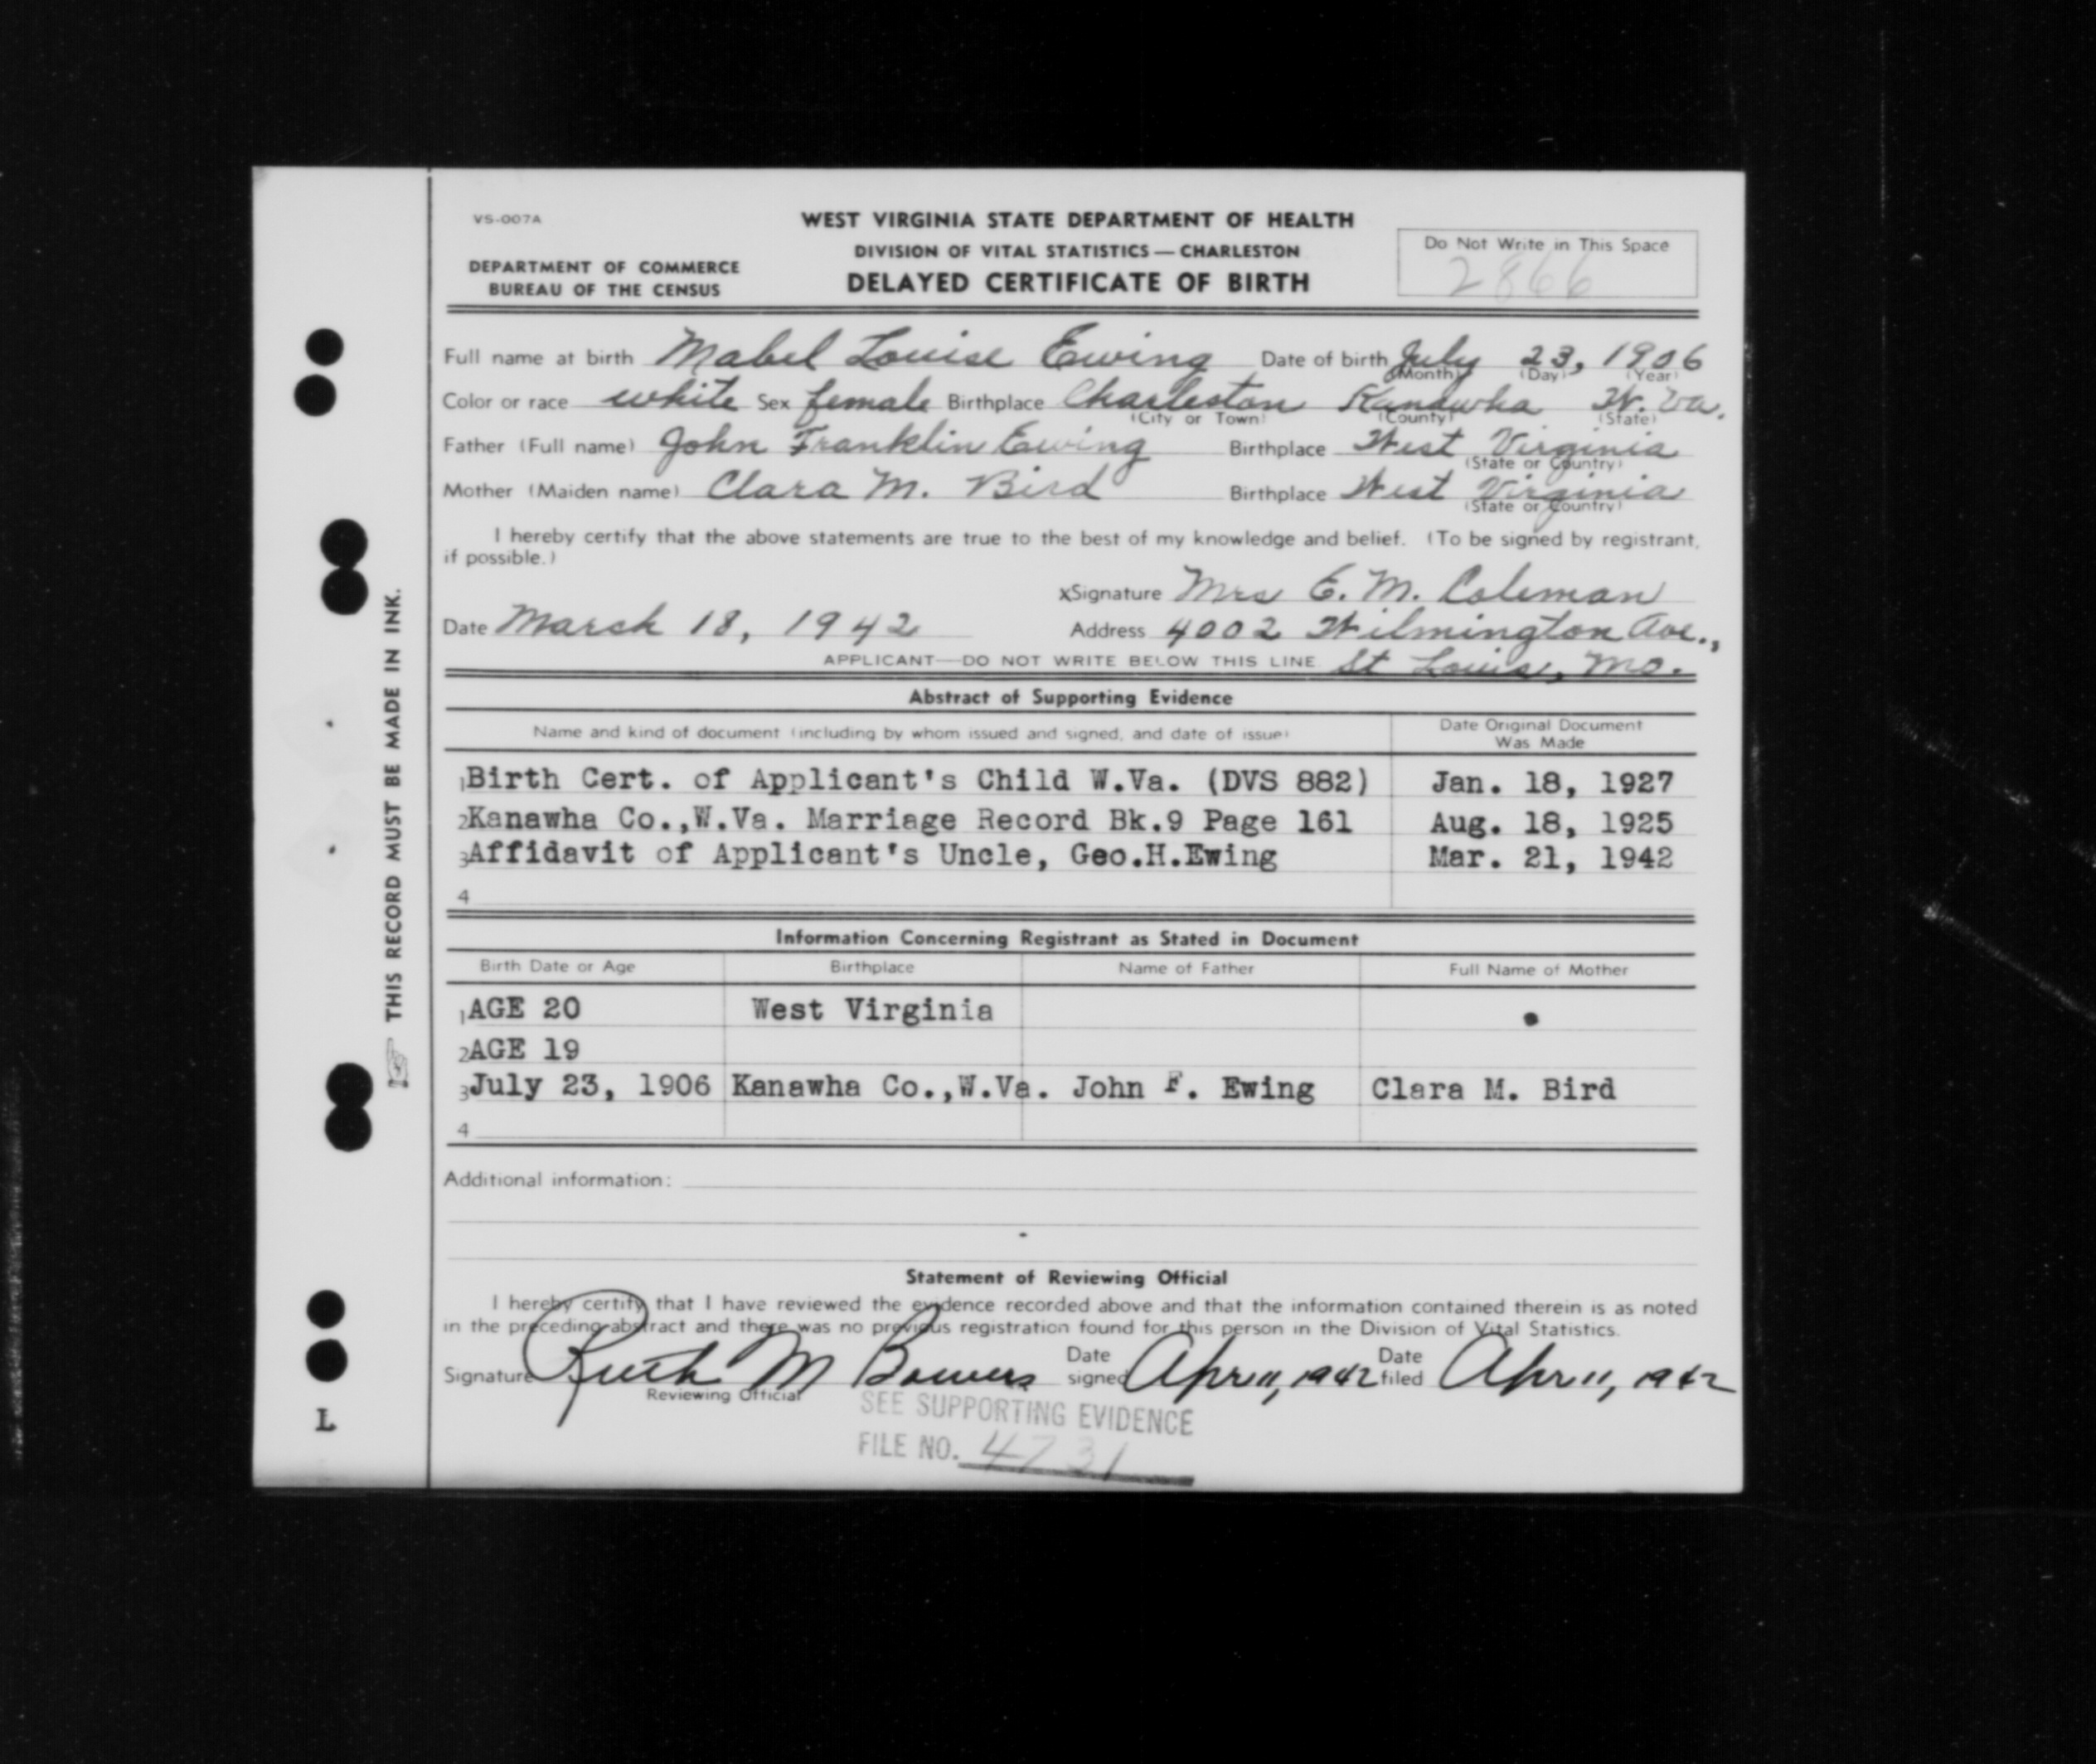 VS-007A
WEST VIRGINIA STATE DEPARTMENT OF HEALTH
DIVISION OF VITAL STATISTICS — CHARLESTON
DELAYED CERTIFICATE OF BIRTH
DEPARTMENT OF COMMERCE
BUREAU OF THE CENSUS
Do Not Write in This Space
2866
Full name at birth Mabel Louise Ewing Date of birth July 23, 1906
(Month) (Day) (Year)
Color or race white Sex female Birthplace Charleston Kanawha W. Va.
(City or Town) (County) (State)
Father (Full name) John Franklin Ewing Birthplace West Virginia
(State or Country)
Mother (Maiden name) Clara M. Bird Birthplace West Virginia
(State or Country)
I hereby certify that the above statements are true to the best of my knowledge and belief. (To be signed by registrant,
if possible.)
xSignature Mrs E. M. Coleman
Date March 18, 1942 Address 4002 Wilmington Ave.,
APPLICANT—DO NOT WRITE BELOW THIS LINE St Louis, Mo.
Abstract of Supporting Evidence
Name and kind of document (including by whom issued and signed, and date of issue) Date Original Document
Was Made
1 Birth Cert. of Applicant's Child W.Va. (DVS 882) Jan. 18, 1927
2 Kanawha Co.,W.Va. Marriage Record Bk.9 Page 161 Aug. 18, 1925
3 Affidavit of Applicant's Uncle, Geo.H.Ewing Mar. 21, 1942
4
Information Concerning Registrant as Stated in Document
Birth Date or Age Birthplace Name of Father Full Name of Mother
1 AGE 20 West Virginia
2 AGE 19
3 July 23, 1906 Kanawha Co.,W.Va. John F. Ewing Clara M. Bird
4
Additional information:
Statement of Reviewing Official
I hereby certify that I have reviewed the evidence recorded above and that the information contained therein is as noted
in the preceding abstract and there was no previous registration found for this person in the Division of Vital Statistics.
Signature Ruth M Bowers Date signed Apr 11, 1942 Date filed Apr 11, 1942
Reviewing Official
SEE SUPPORTING EVIDENCE
FILE NO. 4731
THIS RECORD MUST BE MADE IN INK.
L